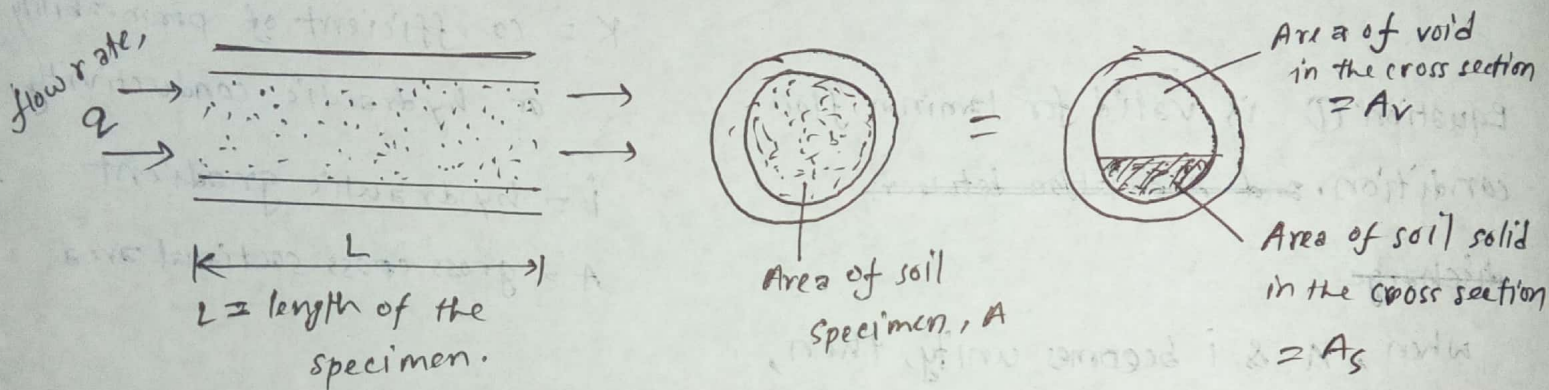 flow rate,
q
L
L = length of the
specimen.
Area of soil
specimen, A
=
Area of void
in the cross section
= Av
Area of soil solid
in the cross section
= As